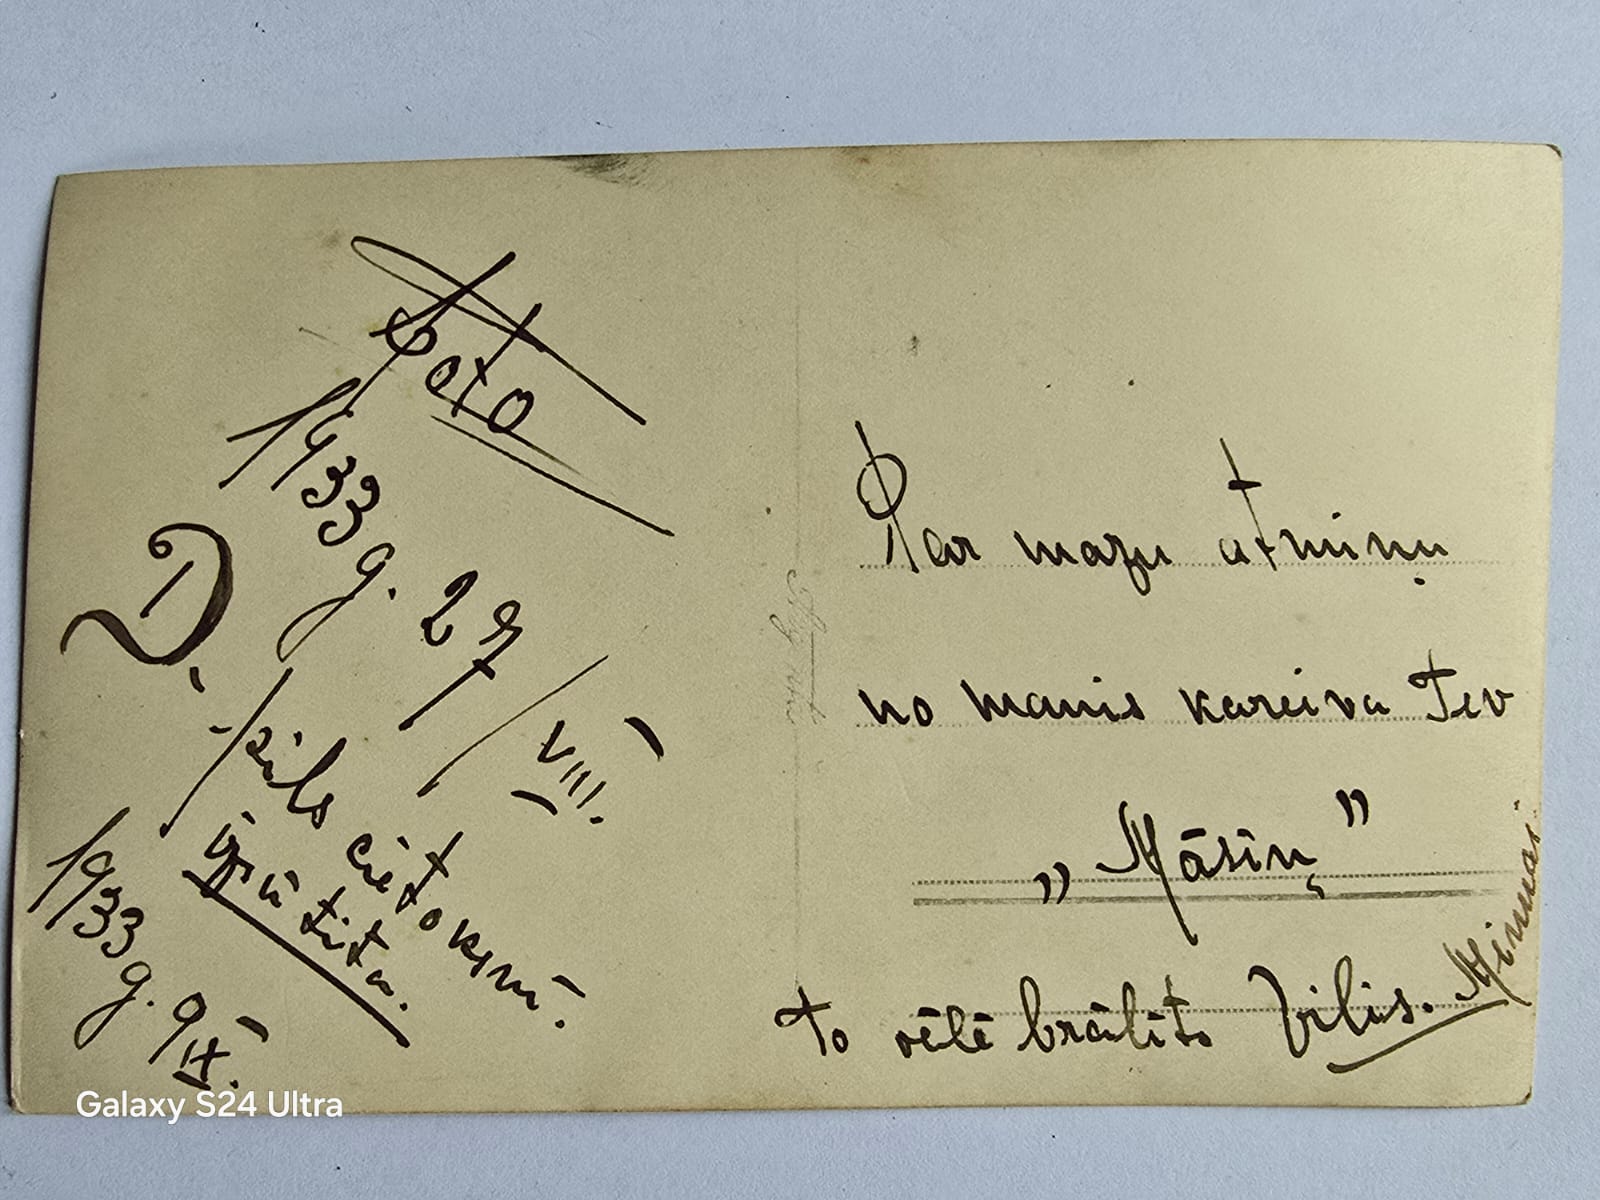 Foto
1933 g. 27/VIII.
D. pils cietoksnī.
izsūtīta.
1933 g. 9 IX.
Par mazu atmiņu
no manis kareiva Tev
„Māsiņ”
to vēlē brālīts Vilis.
Galaxy S24 Ultra